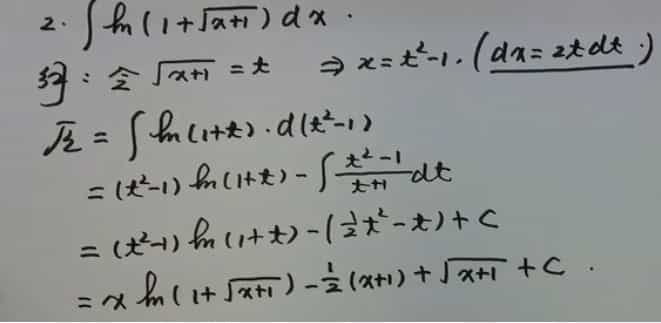 2. ∫ ln(1+√(x+1)) dx.
解: 令 √(x+1) = t ⇒ x=t²-1. (dx=2tdt.)
原 = ∫ ln(1+t)·d(t²-1)
= (t²-1) ln(1+t) - ∫ (t²-1)/(t+1) dt
= (t²-1) ln(1+t) - (1/2 t² - t) + C
= x ln(1+√(x+1)) - 1/2 (x+1) + √(x+1) + C.